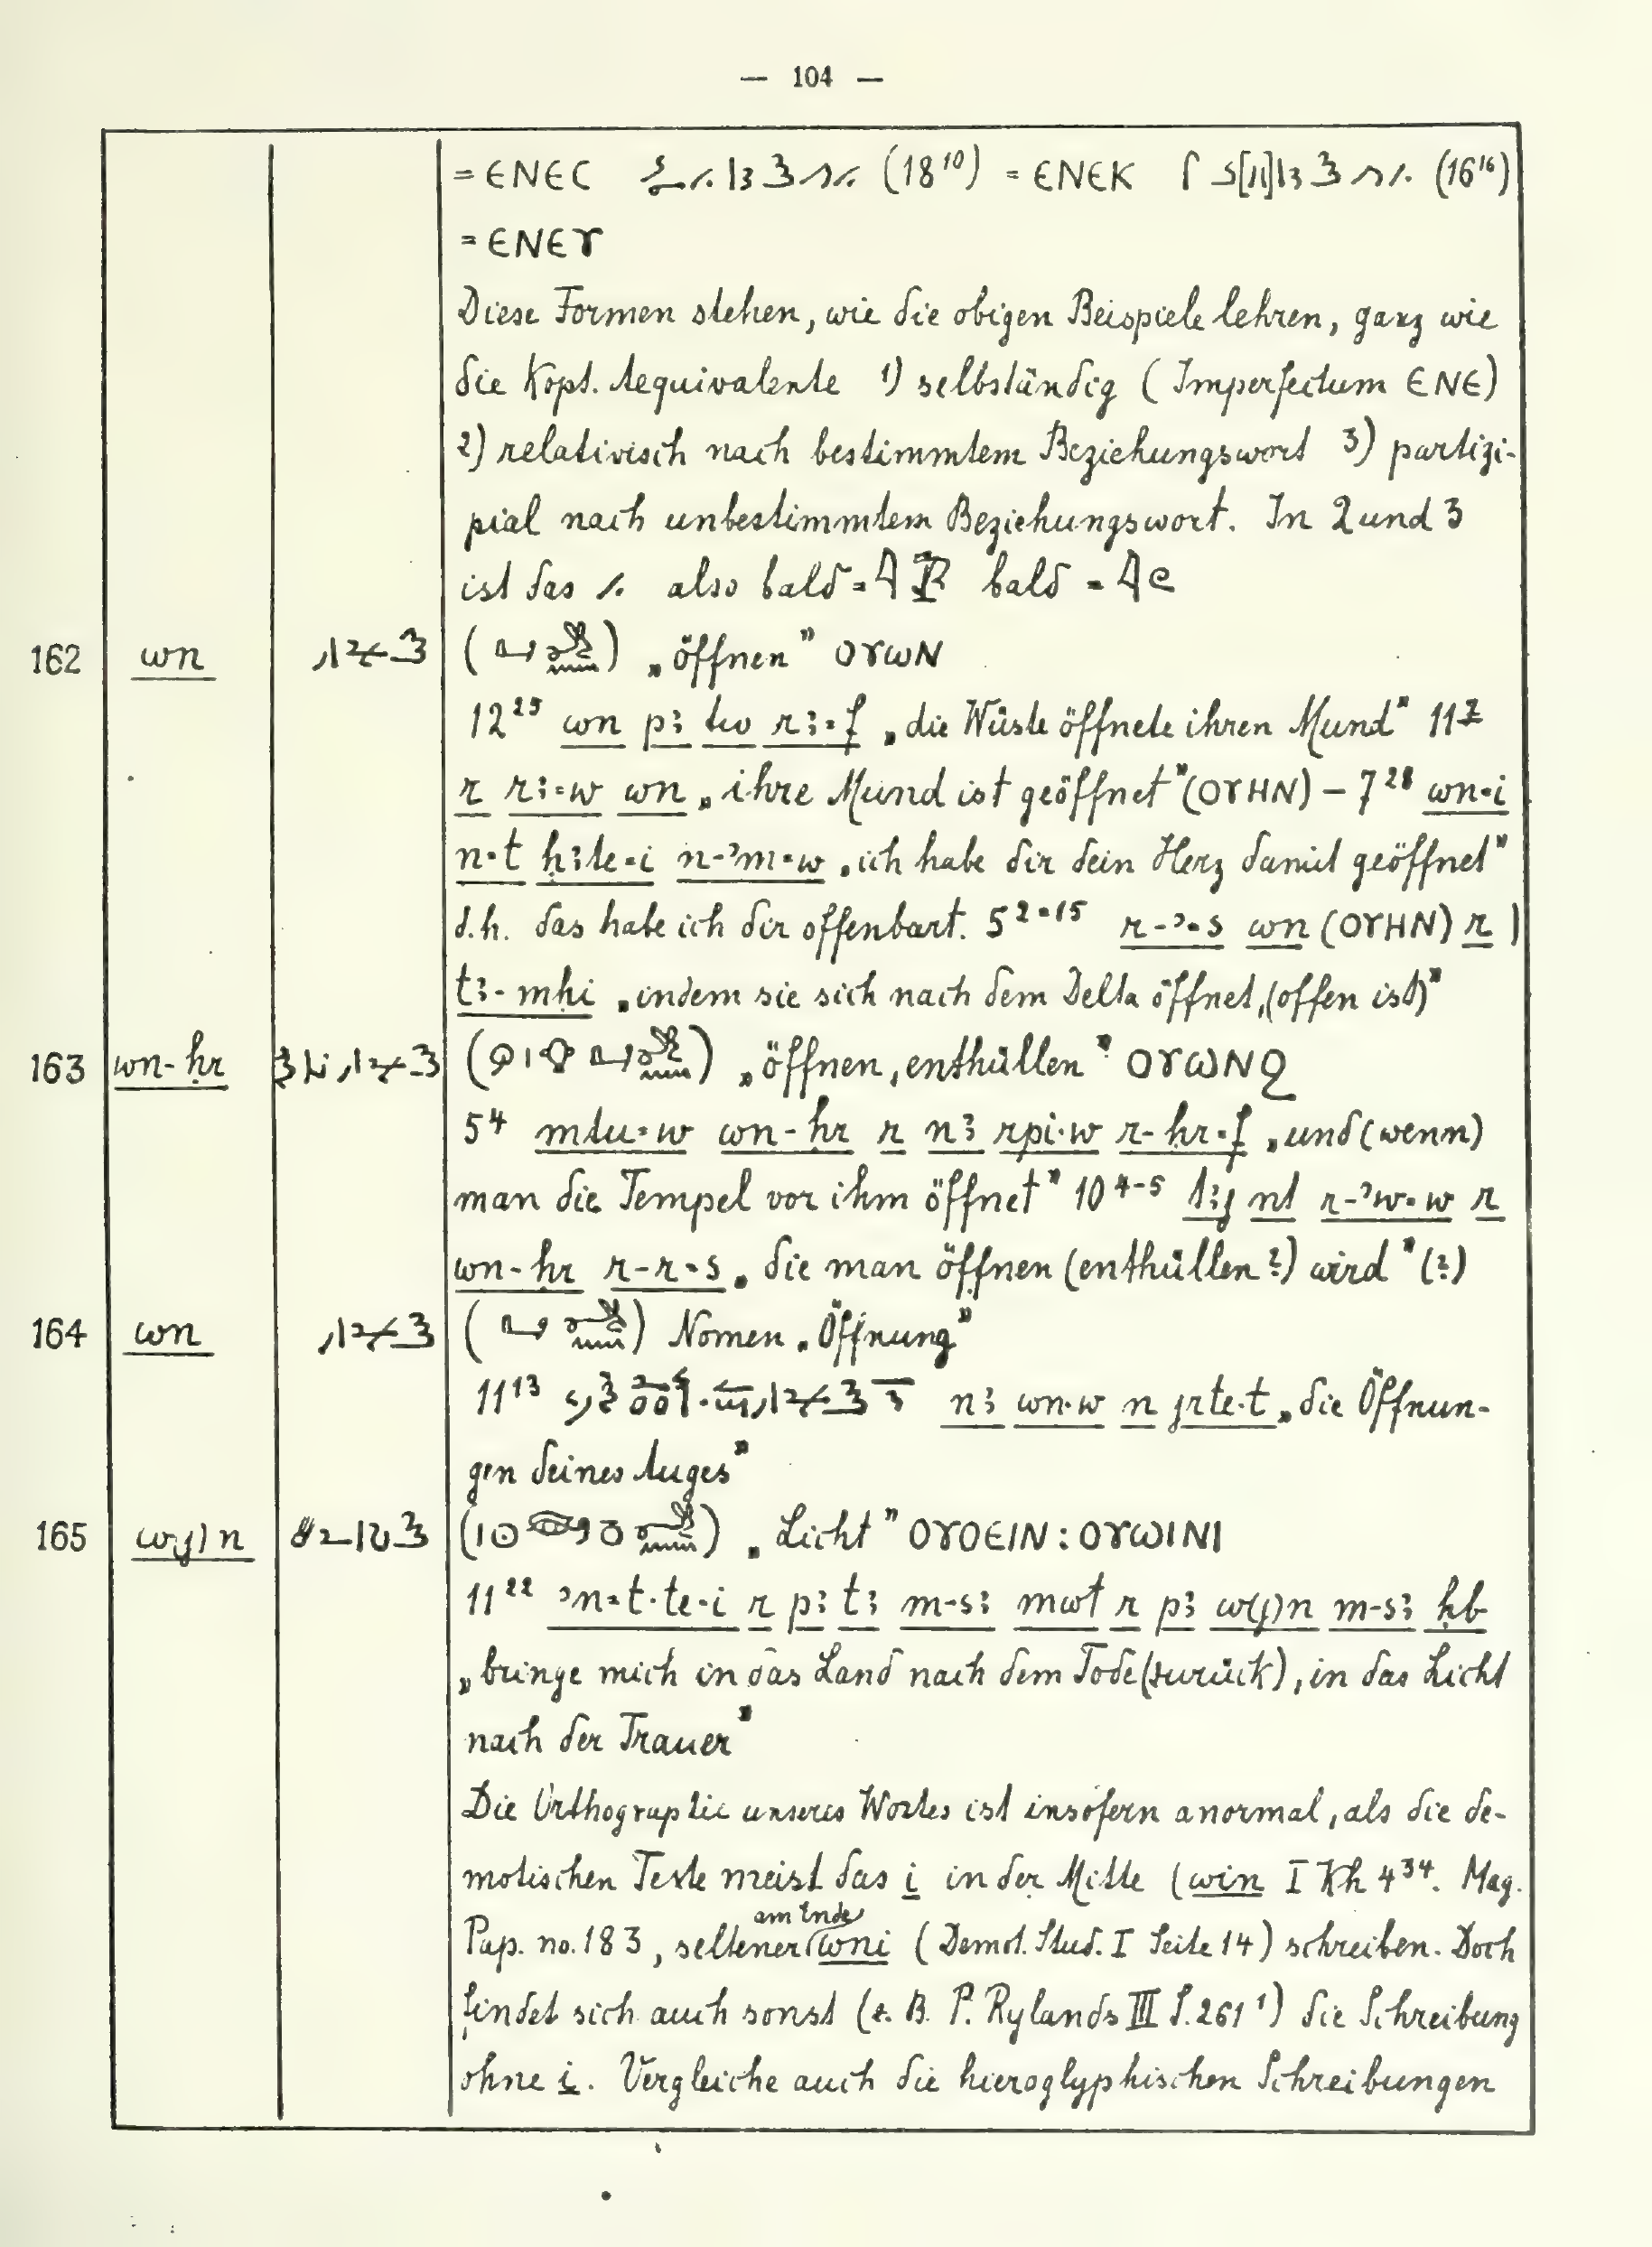 — 104 —
= ⲈⲚⲈⲤ (18¹⁰) = ⲈⲚⲈⲔ (16¹⁶)
= ⲈⲚⲈⲨ
Diese Formen stehen, wie die obigen Beispiele lehren, ganz wie
die Kopt. Aequivalente 1) selbständig (Imperfectum ⲈⲚⲈ)
2) relativisch nach bestimmtem Beziehungswort 3) partizi-
pial nach unbestimmtem Beziehungswort. In 2 und 3
ist das also bald = bald =
162 wn „öffnen" ⲞⲨⲰⲚ
12²⁵ wn pꜣ tw rꜣ=f „die Wüste öffnete ihren Mund" 11
r rꜣ=w wn „ihre Mund ist geöffnet" (ⲞⲨⲎⲚ) – 7²⁸ wn=i
n=t ḥꜣte=i n-ʾm=w „ich habe dir dein Herz damit geöffnet"
d.h. das habe ich dir offenbart. 5²⁼¹⁵ r-ʾ=s wn (ⲞⲨⲎⲚ) r
tꜣ-mḥi „indem sie sich nach dem Delta öffnet, (offen ist)"
163 wn-ḥr „öffnen, enthüllen" ⲞⲨⲰⲚϨ
5⁴ mtu=w wn-ḥr r nꜣ rpi·w r-ḥr=f „und (wenn)
man die Tempel vor ihm öffnet" 10⁴⁻⁵ nt r-ʾw=w r
wn-ḥr r-r=s „die man öffnen (enthüllen?) wird" (?)
164 wn Nomen „Öffnung"
11¹³ nꜣ wn·w n jrte·t „die Öffnun-
gen deines Auges"
165 w(j)n „Licht" ⲞⲨⲞⲈⲒⲚ : ⲞⲨⲰⲒⲚⲒ
11²² ʾn=t·te=i r pꜣ tꜣ m-sꜣ mwt r pꜣ w(j)n m-sꜣ ḥb
„bringe mich in das Land nach dem Tode (zurück), in das Licht
nach der Trauer"
Die Orthographie unseres Wortes ist insofern anormal, als die de-
motischen Texte meist das i in der Mitte (win I Kh 4³⁴. Mag.
Pap. no. 183, seltener am Ende wni (Demot. Stud. I Seite 14) schreiben. Doch
findet sich auch sonst (z. B. P. Rylands III S. 261¹) die Schreibung
ohne i. Vergleiche auch die hieroglyphischen Schreibungen